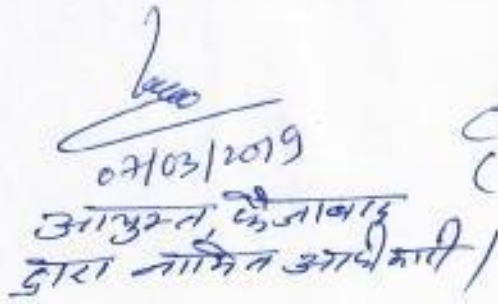 07/03/2019
आयुक्त, फैजाबाद
द्वारा नामित अधिकारी /